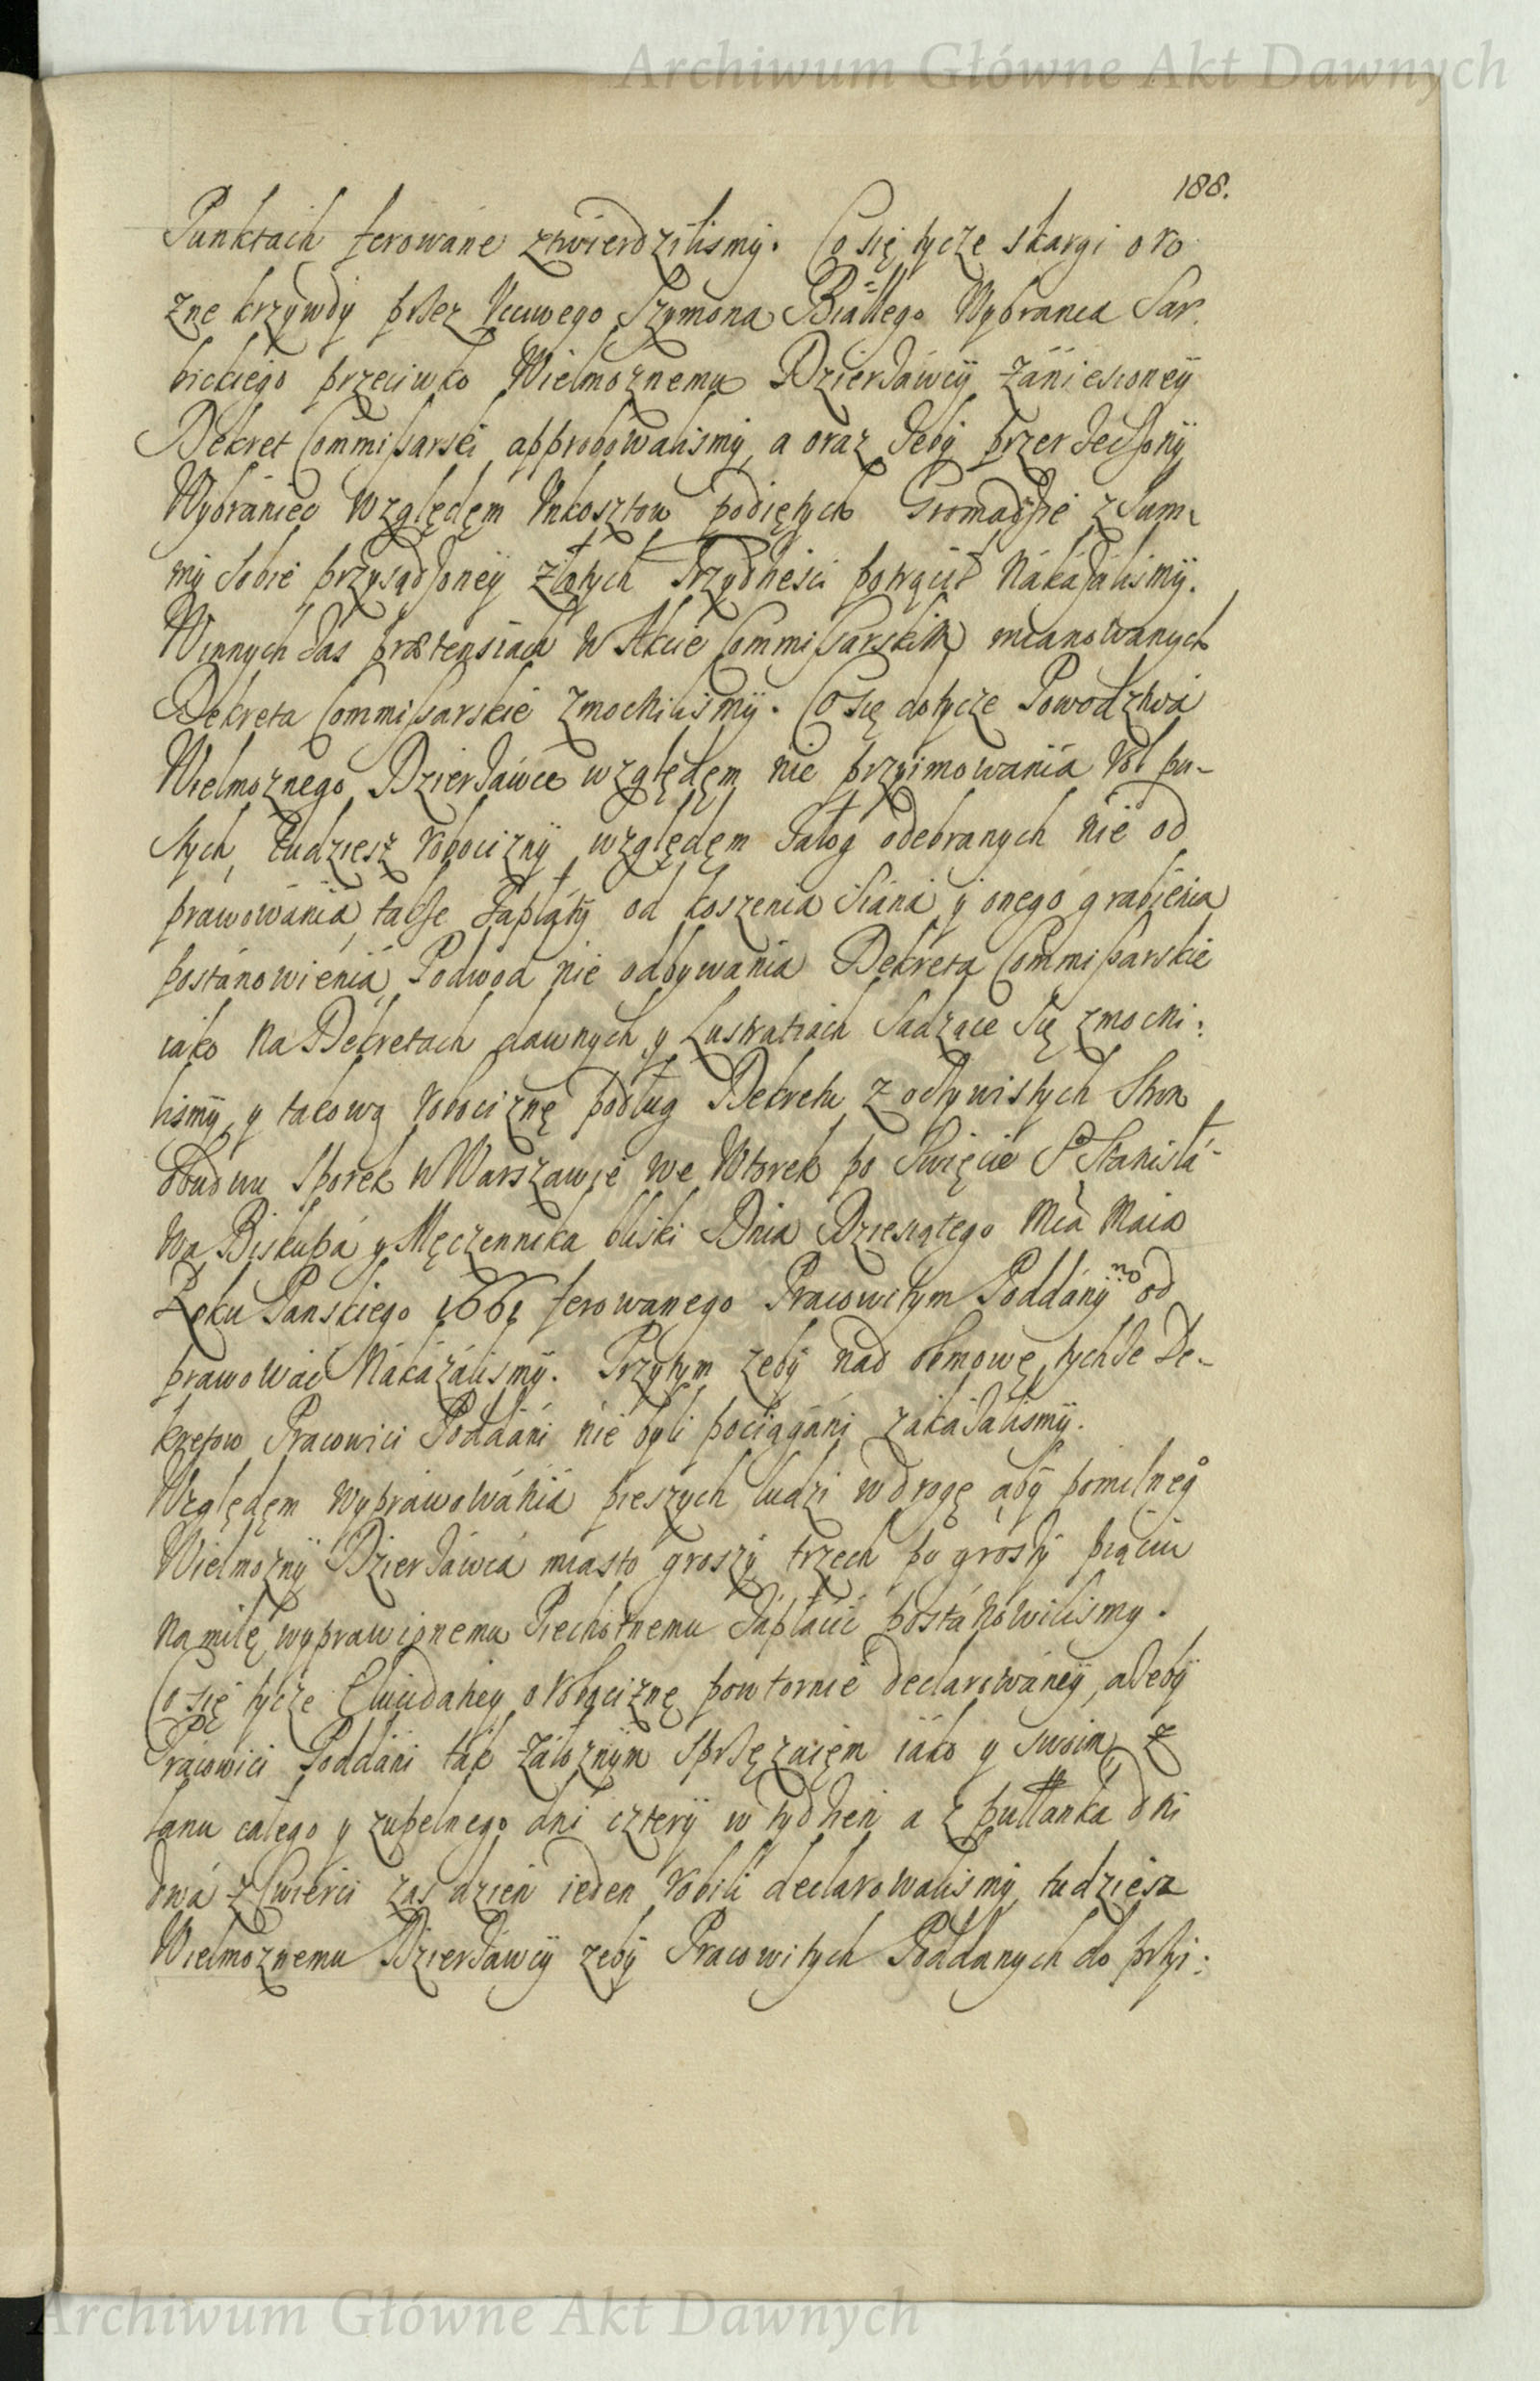 Archiwum Główne Akt Dawnych
188.
Punktach ferowáne ztwierdziliśmÿ. Co się tycze skargi o ro
żne krzywdy przez Vcciwego Szymona Białłego Wybranca Sar
bickiego przeciwko Wielmożnemu Dzierżáwcÿ zánieśioneÿ
Dekret Commissarski approbowalismÿ, a oraz żebÿ przerzeczonÿ
Wybránieć względęm Vnkosztow podiętych Gromadzie z Sum-
mÿ sobie przysądzoneÿ złotych Trzydzieści potrącił nákazáliśmÿ.
W innych zás prætensiach w Akcie Commissarskim mianowanych
Dekreta Commissarskie zmocniliśmÿ. Co się dotycze Powodztwá
Wielmożnego Dzierżáwce względęm nie przyimowania Rol pu-
stych, tudziesz robociznÿ względęm załog odebranych nie od
prawowánia, także zapłátÿ od koszenia siáná ÿ onego grabienia
postánowieniá, Podwod nie odbywánia Dekreta Commissarskie
iáko na Dekretach dawnych y Lustratiach sadzące się zmocni-
liśmÿ, y takową robociznę podług Dekretu z oczywistych stron
oboudwu sporek w Warszawie we Wtorek po Swięcie S° Stánisłá-
wa Biskupá y Męczennika bliski Dnia Dziesiątego Mcá Maia
Roku Panskiego 1661 ferowanego Pracowitym Poddánÿm od
prawowáć nákázáliśmÿ. Przytym żebÿ nad obmowę tychże De-
kretow Pracowici Poddáni nie byli pociągáni zákázáliśmÿ.
Względęm wyprawowániá pieszych ludzi w drogę ábÿ pomilneg°
Wielmożnÿ Dzierżáwcá miásto groszÿ trzech po groszÿ pięciu
na milę, wyprawionemu Piechotnemu zápłácić postánowiliśmy.
Co się tycze Elucidátieÿ o robociznę powtornie declarowáneÿ, ażebÿ
Prácowici Poddáni ták záłożnÿm sprzężaięm iáko y swoim z
łanu cáłego y zupełnego dni czterÿ w tydzień a z pułłanká dni
dwá z Cwierci zaś dzień ieden robili declarowáliśmÿ, tudziesz
Wielmożnemu Dzierżáwcÿ żebÿ Pracowitych Poddanych do przyi-
Archiwum Główne Akt Dawnych